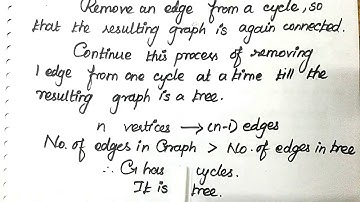 Remove an edge from a cycle, so
that the resulting graph is again connected.
Continue this process of removing
1 edge from one cycle at a time till the
resulting graph is a tree.
n vertices → (n-1) edges
No. of edges in Graph > No. of edges in tree
∴ G has cycles.
It is tree.